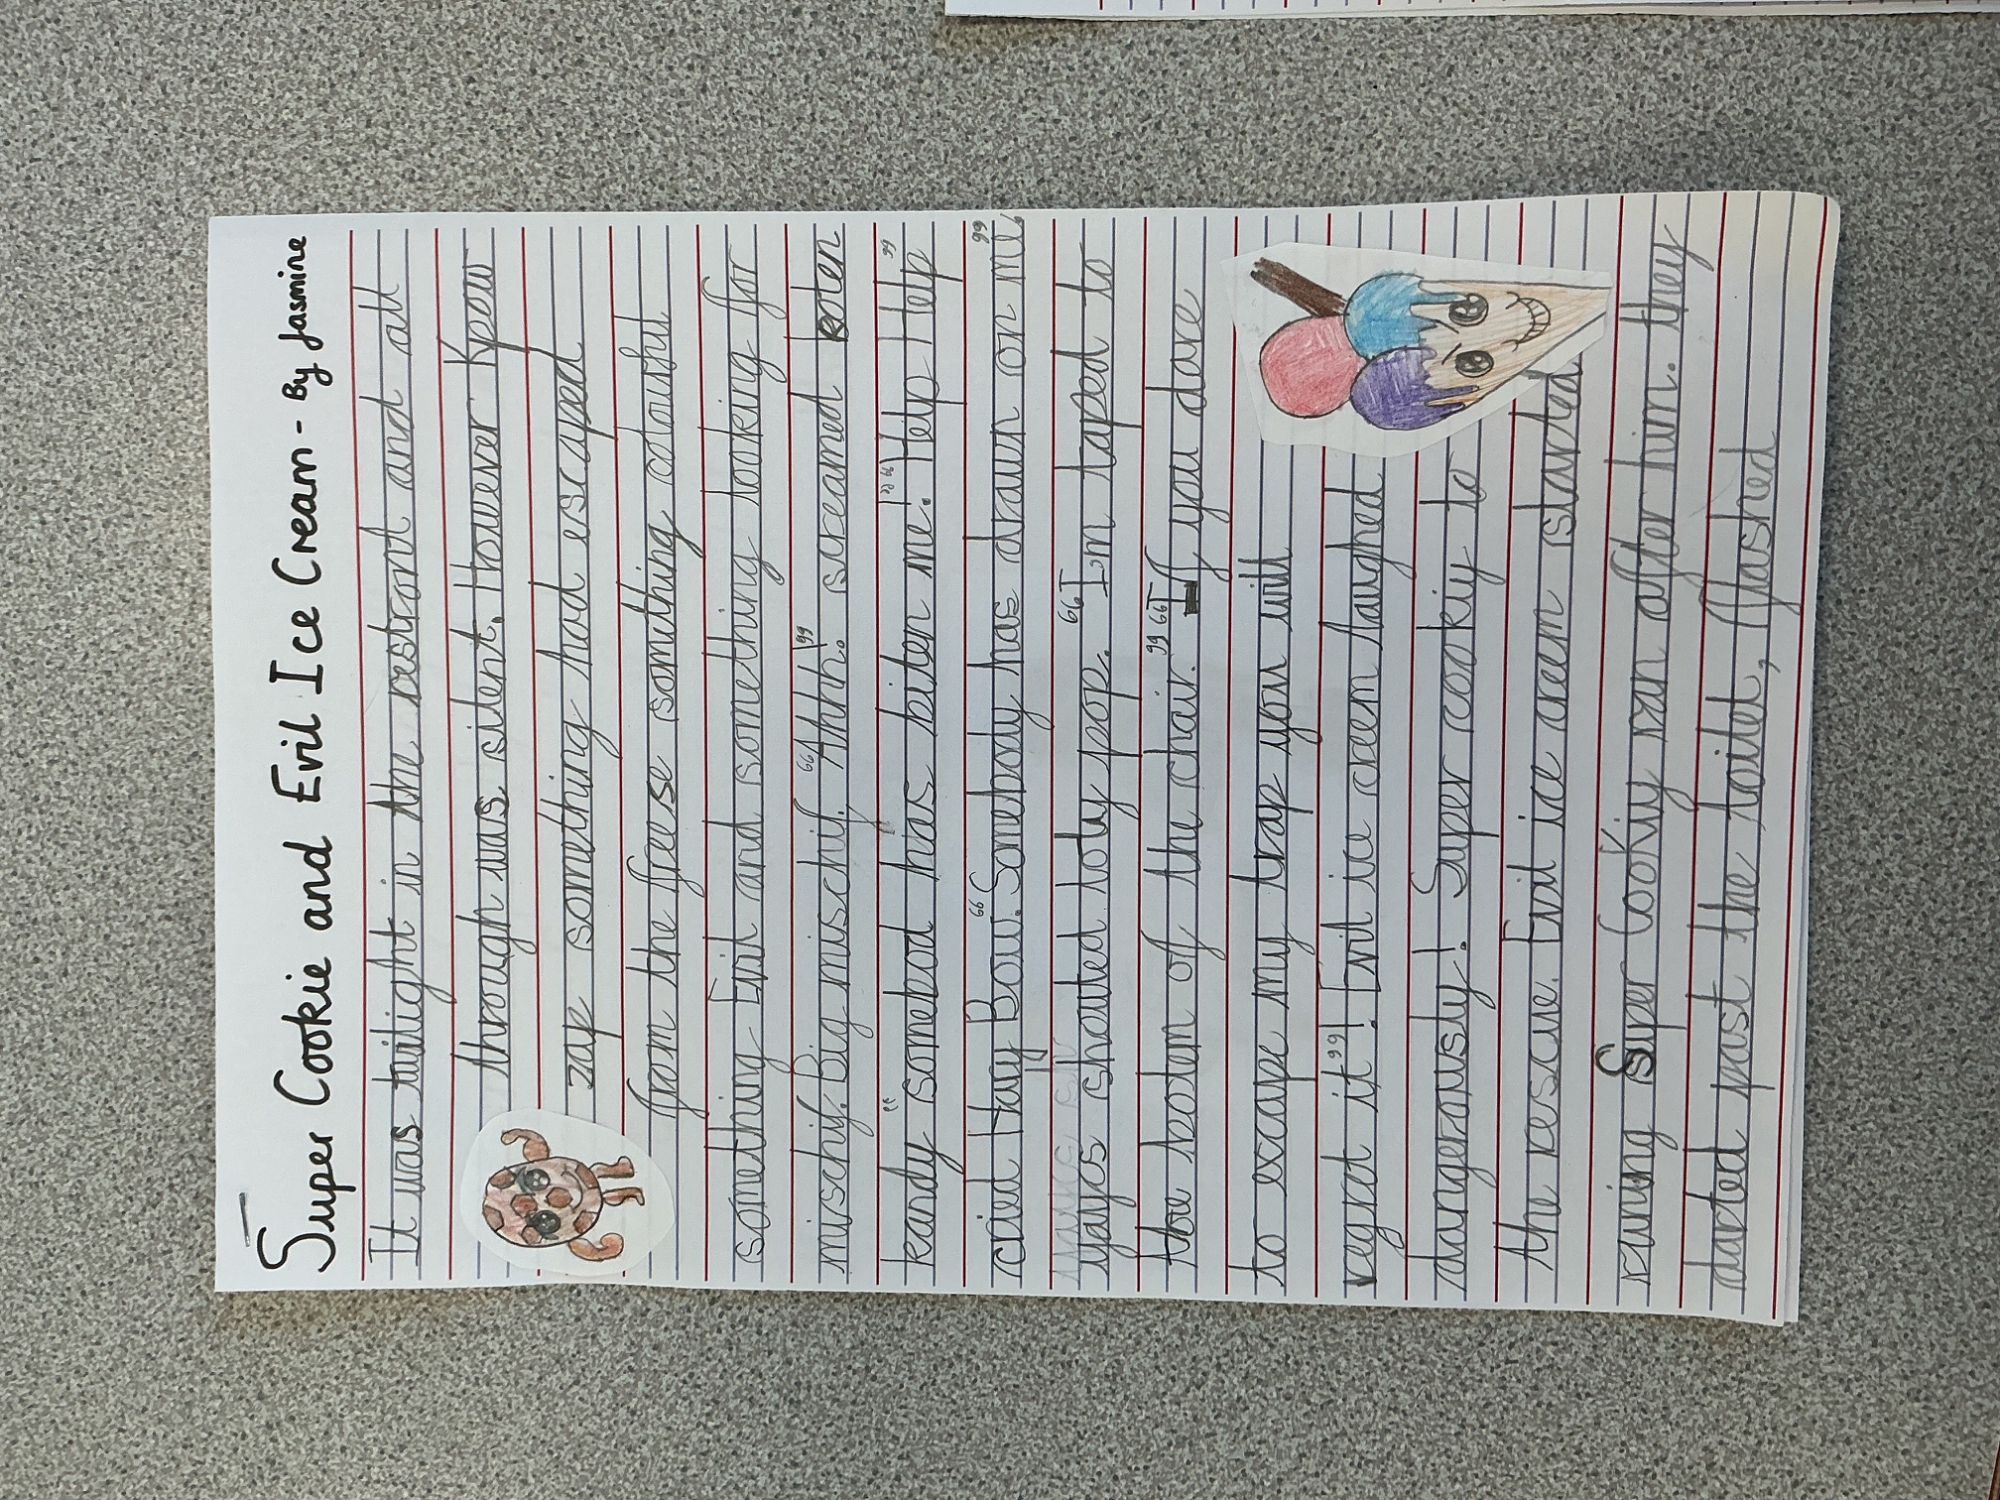 Super Cookie and Evil Ice Cream - By Jasmine
It was twilight in the restront and all
through was silent. However Kpew
zap something had escaped
from the freese something colousful
something Evil and something looking for
mischif. Big mischif. "Ahhh!" screamed roten
kandy "somebod has biten me!" "Help Help"
cried Hay Bow. "Somebody has drawn on me,"
yaycs shouted loly pop. "I'm taped to
the botem of the chair." "If you dare
to excape my trap you will
regret it"! Evil ice creem laughed
dangerously! Super cookiy to
the rescue. Evil ice creem started
runing Super Cookiy ran after him. they
darted past the toilet, flashed